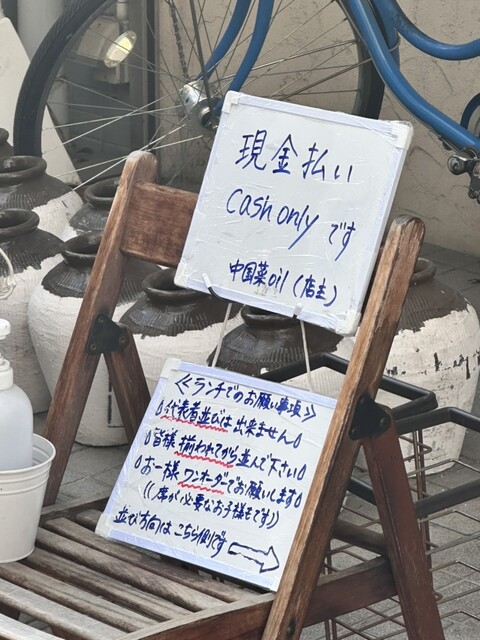 現金払い
cash onlyです
中国菜oil(店主)
<<ランチでのお願い事項>>
0代表者並びは出来ません0
0皆様揃われてから並んで下さい0
0お一様ワンオーダーでお願いします0
((席が必要なお子様もです))
並び方向はこちら側です→